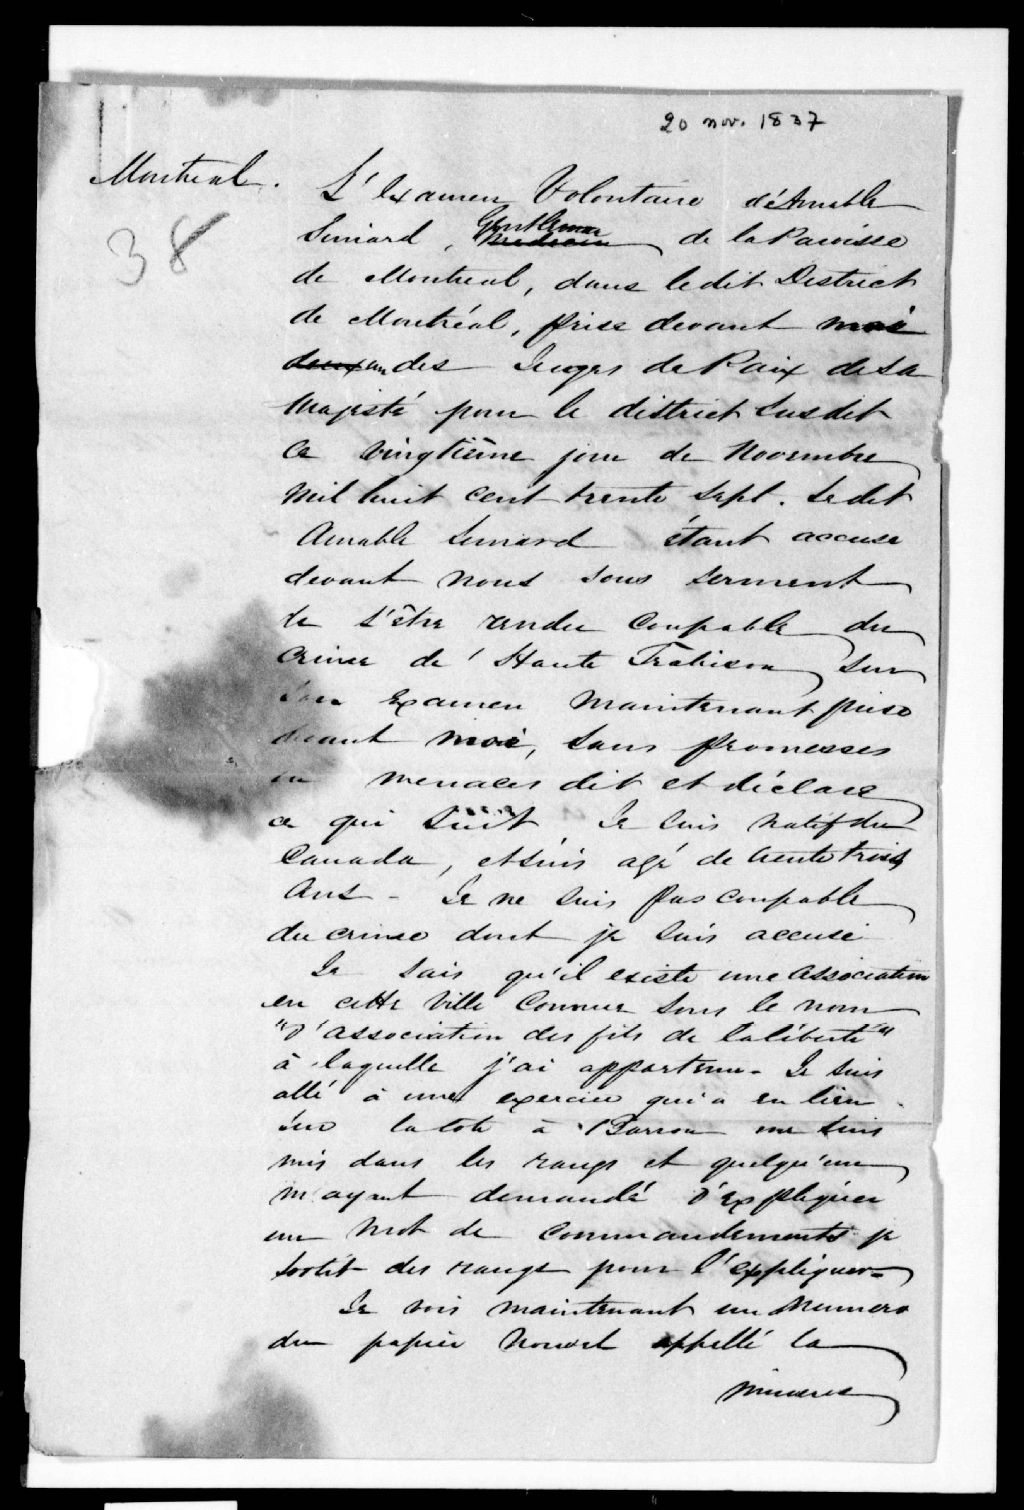 20 nov. 1837
Montreal.
38
L'Examen Volontaire d'Amable
Simard, Gentleman de la Paroisse
de Montreal, dans ledit District
de Montréal, prise devant moi
un des Juges de Paix de Sa
Majesté pour le district Susdit
Ce vingtième jour de Novembre
Mil huit cent trente Sept. Ledit
Amable Simard étant accusé
devant nous sous serment
de s'être rendu Coupable du
Crime de Haute Trahison Sur
Son Examen Maintenant prise
devant moi, Sans promesses
ou menaces dit et déclare
ce qui Suit, Je Suis Natif du
Canada, et suis agé de trente trois
Ans - Je ne Suis pas coupable
du crime dont je Suis accusé
Je Sais qu'il existe une Association
en cette Ville Connue Sous le nom
"d'association des fils de la liberté"
à laquelle j'ai appartenu - Je Suis
allé à une exercice qui a eu lieu
Sur la Cote à Barron me Suis
mis dans les rangs et quelqu'un
m'ayant demandé d'expliquer
un Mot de Commandements je
Sortit des rangs pour l'expliquer -
Je vois maintenant un Numero
du papier Nouvel appellé la
Minerve